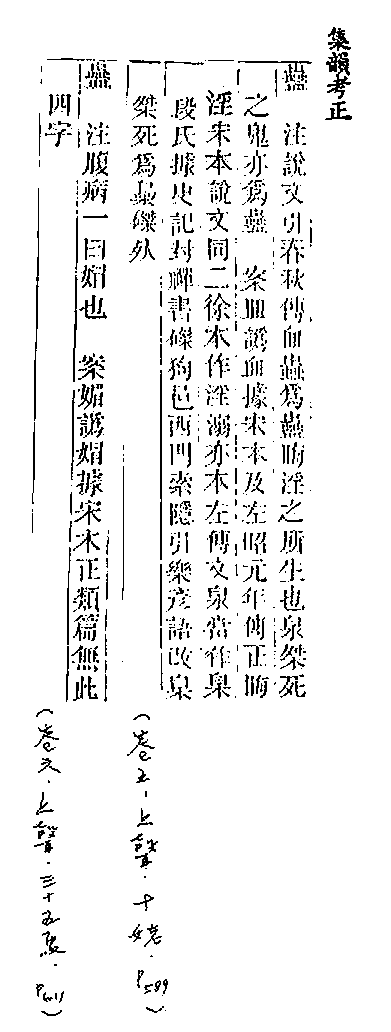 集韻考正
蠱 注說文引春秋傳血蟲爲蠱晦淫之所生也臬桀死
之鬼亦爲蠱 案皿譌血據宋本及左昭元年傳正晦
淫宋本說文同二徐本作淫溺亦本左傳文臬當作梟
段氏據史記封禪書磔狗邑四門索隱引樂彥語改梟
桀死爲梟磔死
蠱 注腹病一曰媚也 案媚譌媚據宋本正類篇無此
四字
(卷五.上聲.十姥.P589)
(卷六.上聲.三十五馬.P611)